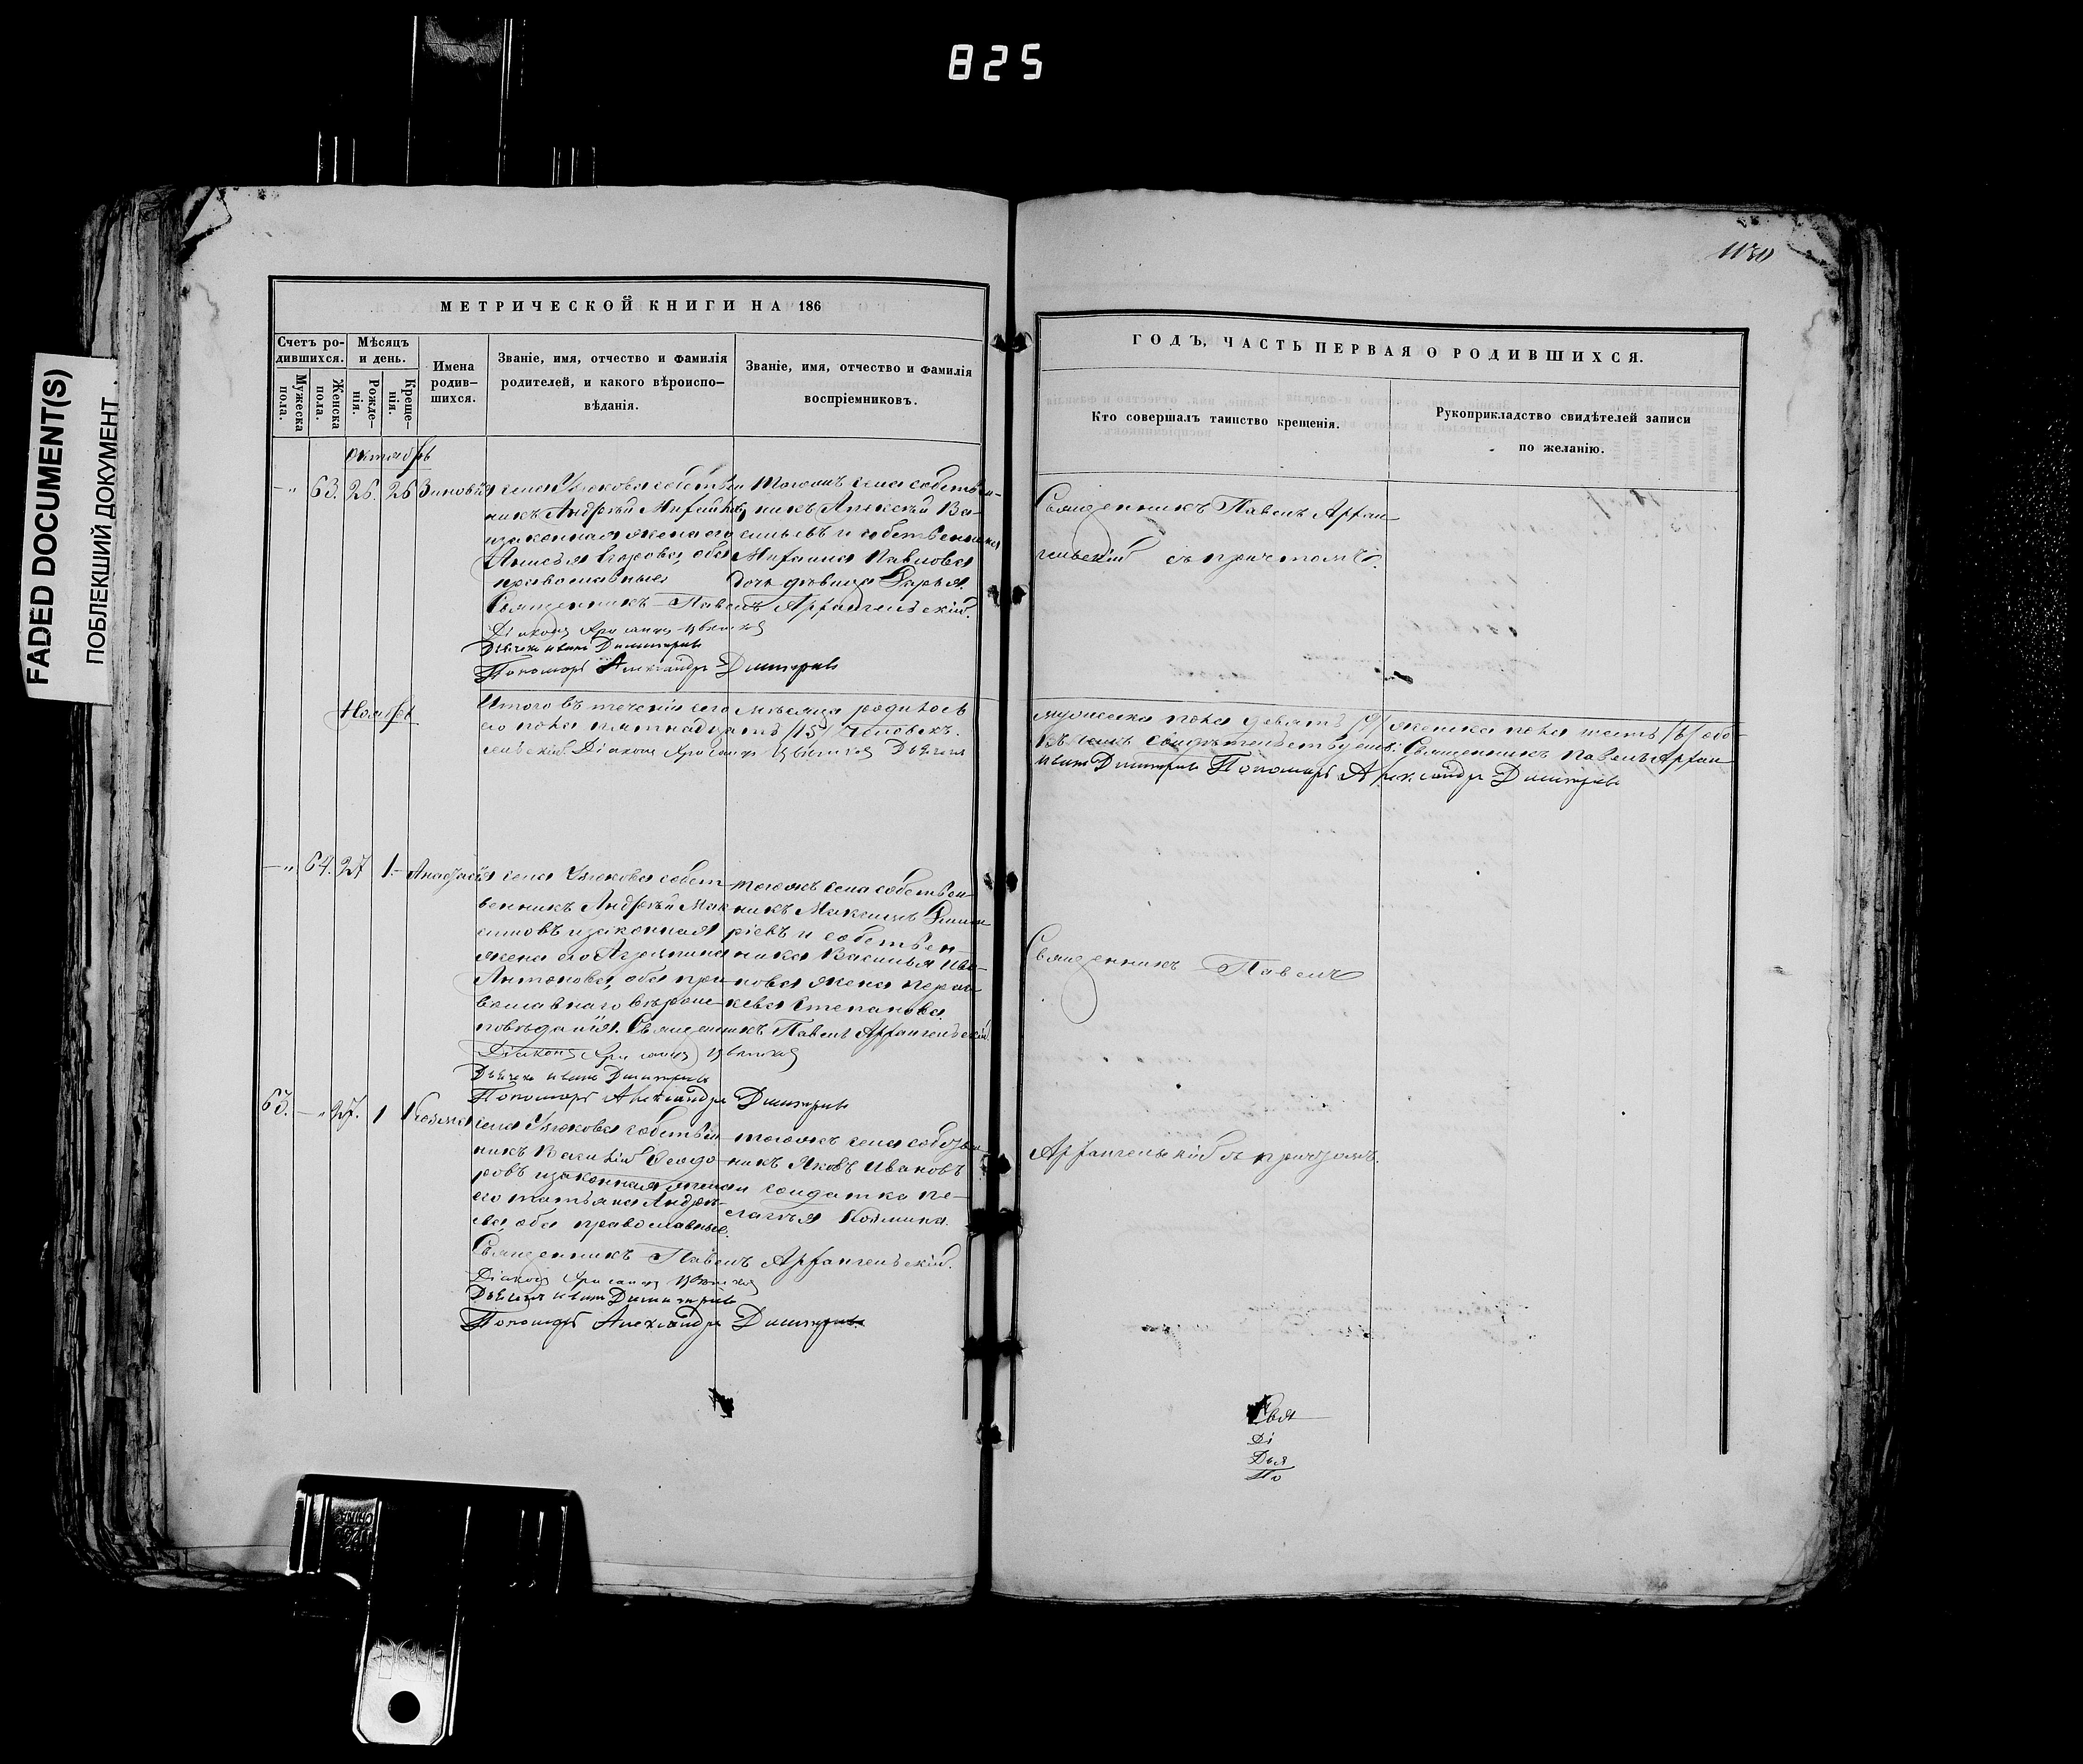 825
FADED DOCUMENT(S)
ПОБЛЕКШИЙ ДОКУМЕНТ
1130
МЕТРИЧЕСКОЙ КНИГИ НА 186
Счетъ ро-
дившихся.
Мужеска
пола.
Женска
пола.
Мѣсяцъ
и день.
Рожде-
нія.
Креще-
нія.
Имена
родив-
шихся.
Званіе, имя, отчество и фамилія
родителей, и какого вѣроиспо-
вѣданія.
Званіе, имя, отчество и фамилія
воспріемниковъ.
Октябрь
63. 26. 26 Зиновія
села собствен
никъ Андрей
и законная жена его
Анисья Егорова, оба
православные
Тогожъ села собствен-
никъ Алексѣй Ва-
сильевъ и собственника
Михаила Павлова
дочь дѣвица Дарья.
Священникъ Павелъ Архангельскій
Діаконъ
Дьячекъ Иванъ Димитріевъ
Пономарь Александръ Димитріевъ
Ноябрь
Итого въ теченіи сего мѣсяца родилось
его пола пятнадцать /15/ человѣкъ.
гельскій. Діаконъ Дьячекъ
64. 27 1. Анастасія
села собст-
венникъ Андрей Мак
симовъ и законная
жена его Агрипина
Антонова, оба пра-
вославнаго вѣроис-
повѣданія.
тогожъ села собствен-
никъ Максимъ Дими
ріевъ и собствен-
ника Василья Ива-
нова жена Парас-
кева Степанова.
Священникъ Павелъ Архангельскій
Діаконъ
Дьячекъ Иванъ Димитріевъ
Пономарь Александръ Димитріевъ
63. 27. 1 Козма
села собствен
никъ Василій Ѳеодо-
ровъ и законная жена
его Татьяна Андре-
ева, оба православные.
тогожъ села собствен-
никъ Яковъ Ивановъ
и солдатка Пе-
лагья Козмина.
Священникъ Павелъ Архангельскій.
Діаконъ
Дьячекъ Иванъ Димитріевъ
Пономарь Александръ Димитріевъ
ГОДЪ, ЧАСТЬ ПЕРВАЯ О РОДИВШИХСЯ.
Кто совершалъ таинство крещенія.
Рукоприкладство свидѣтелей записи
по желанію.
Священникъ Павелъ Архан
гельскій съ причтомъ.
мужеска пола девять /9/ женска пола шесть /6/ обо-
Въ чемъ свидѣтельствуемъ: Священникъ Павелъ Архан
Иванъ Димитріевъ Пономарь Александръ Димитріевъ
Священникъ Павелъ
Архангельскій съ причтомъ.
Свя
Ді
Дья
По